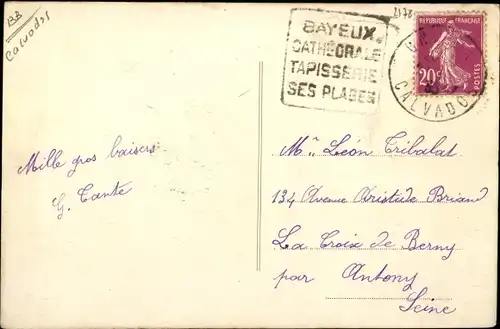 BB
Calvados
2178
BAYEUX.
CATHÉDRALE
TAPISSERIE
SES PLAGES
REPUBLIQUE FRANÇAISE
20c
POSTES
CALVADOS
Mille gros baisers
G. Tante
Mr. Léon Tribalat
134 Avenue Aristide Briand
La Croix de Berny
par Antony
Seine